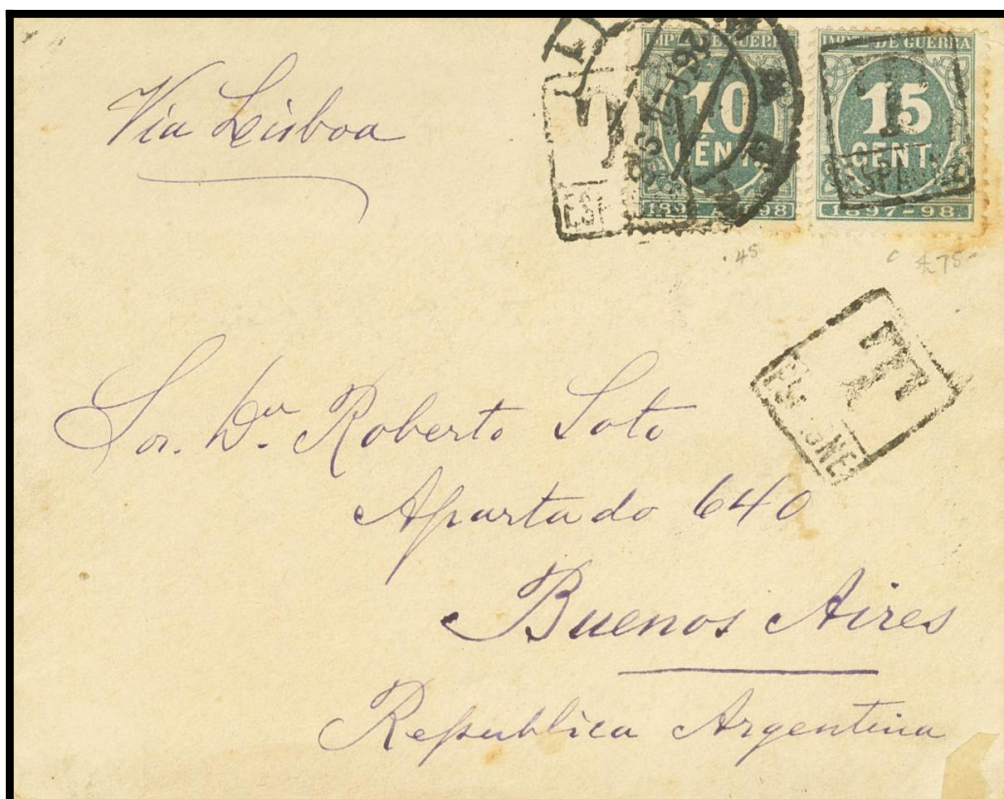 Via Lisboa
IMPTO DE GUERRA
10
CENT.
1897-98
IMPTO DE GUERRA
15
CENT.
1897-98
T
T
ESPAGNE
45
Sor. Dn. Roberto Soto
Apartado 640
Buenos Aires
Republica Argentina